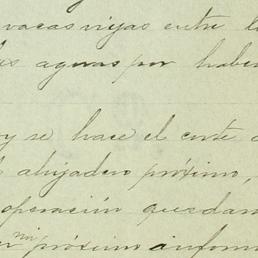 vacas viejas entre l
is aguas por haber
y se hace el corte d
ahijadero próximo,
operación quedan
mi próximo inform